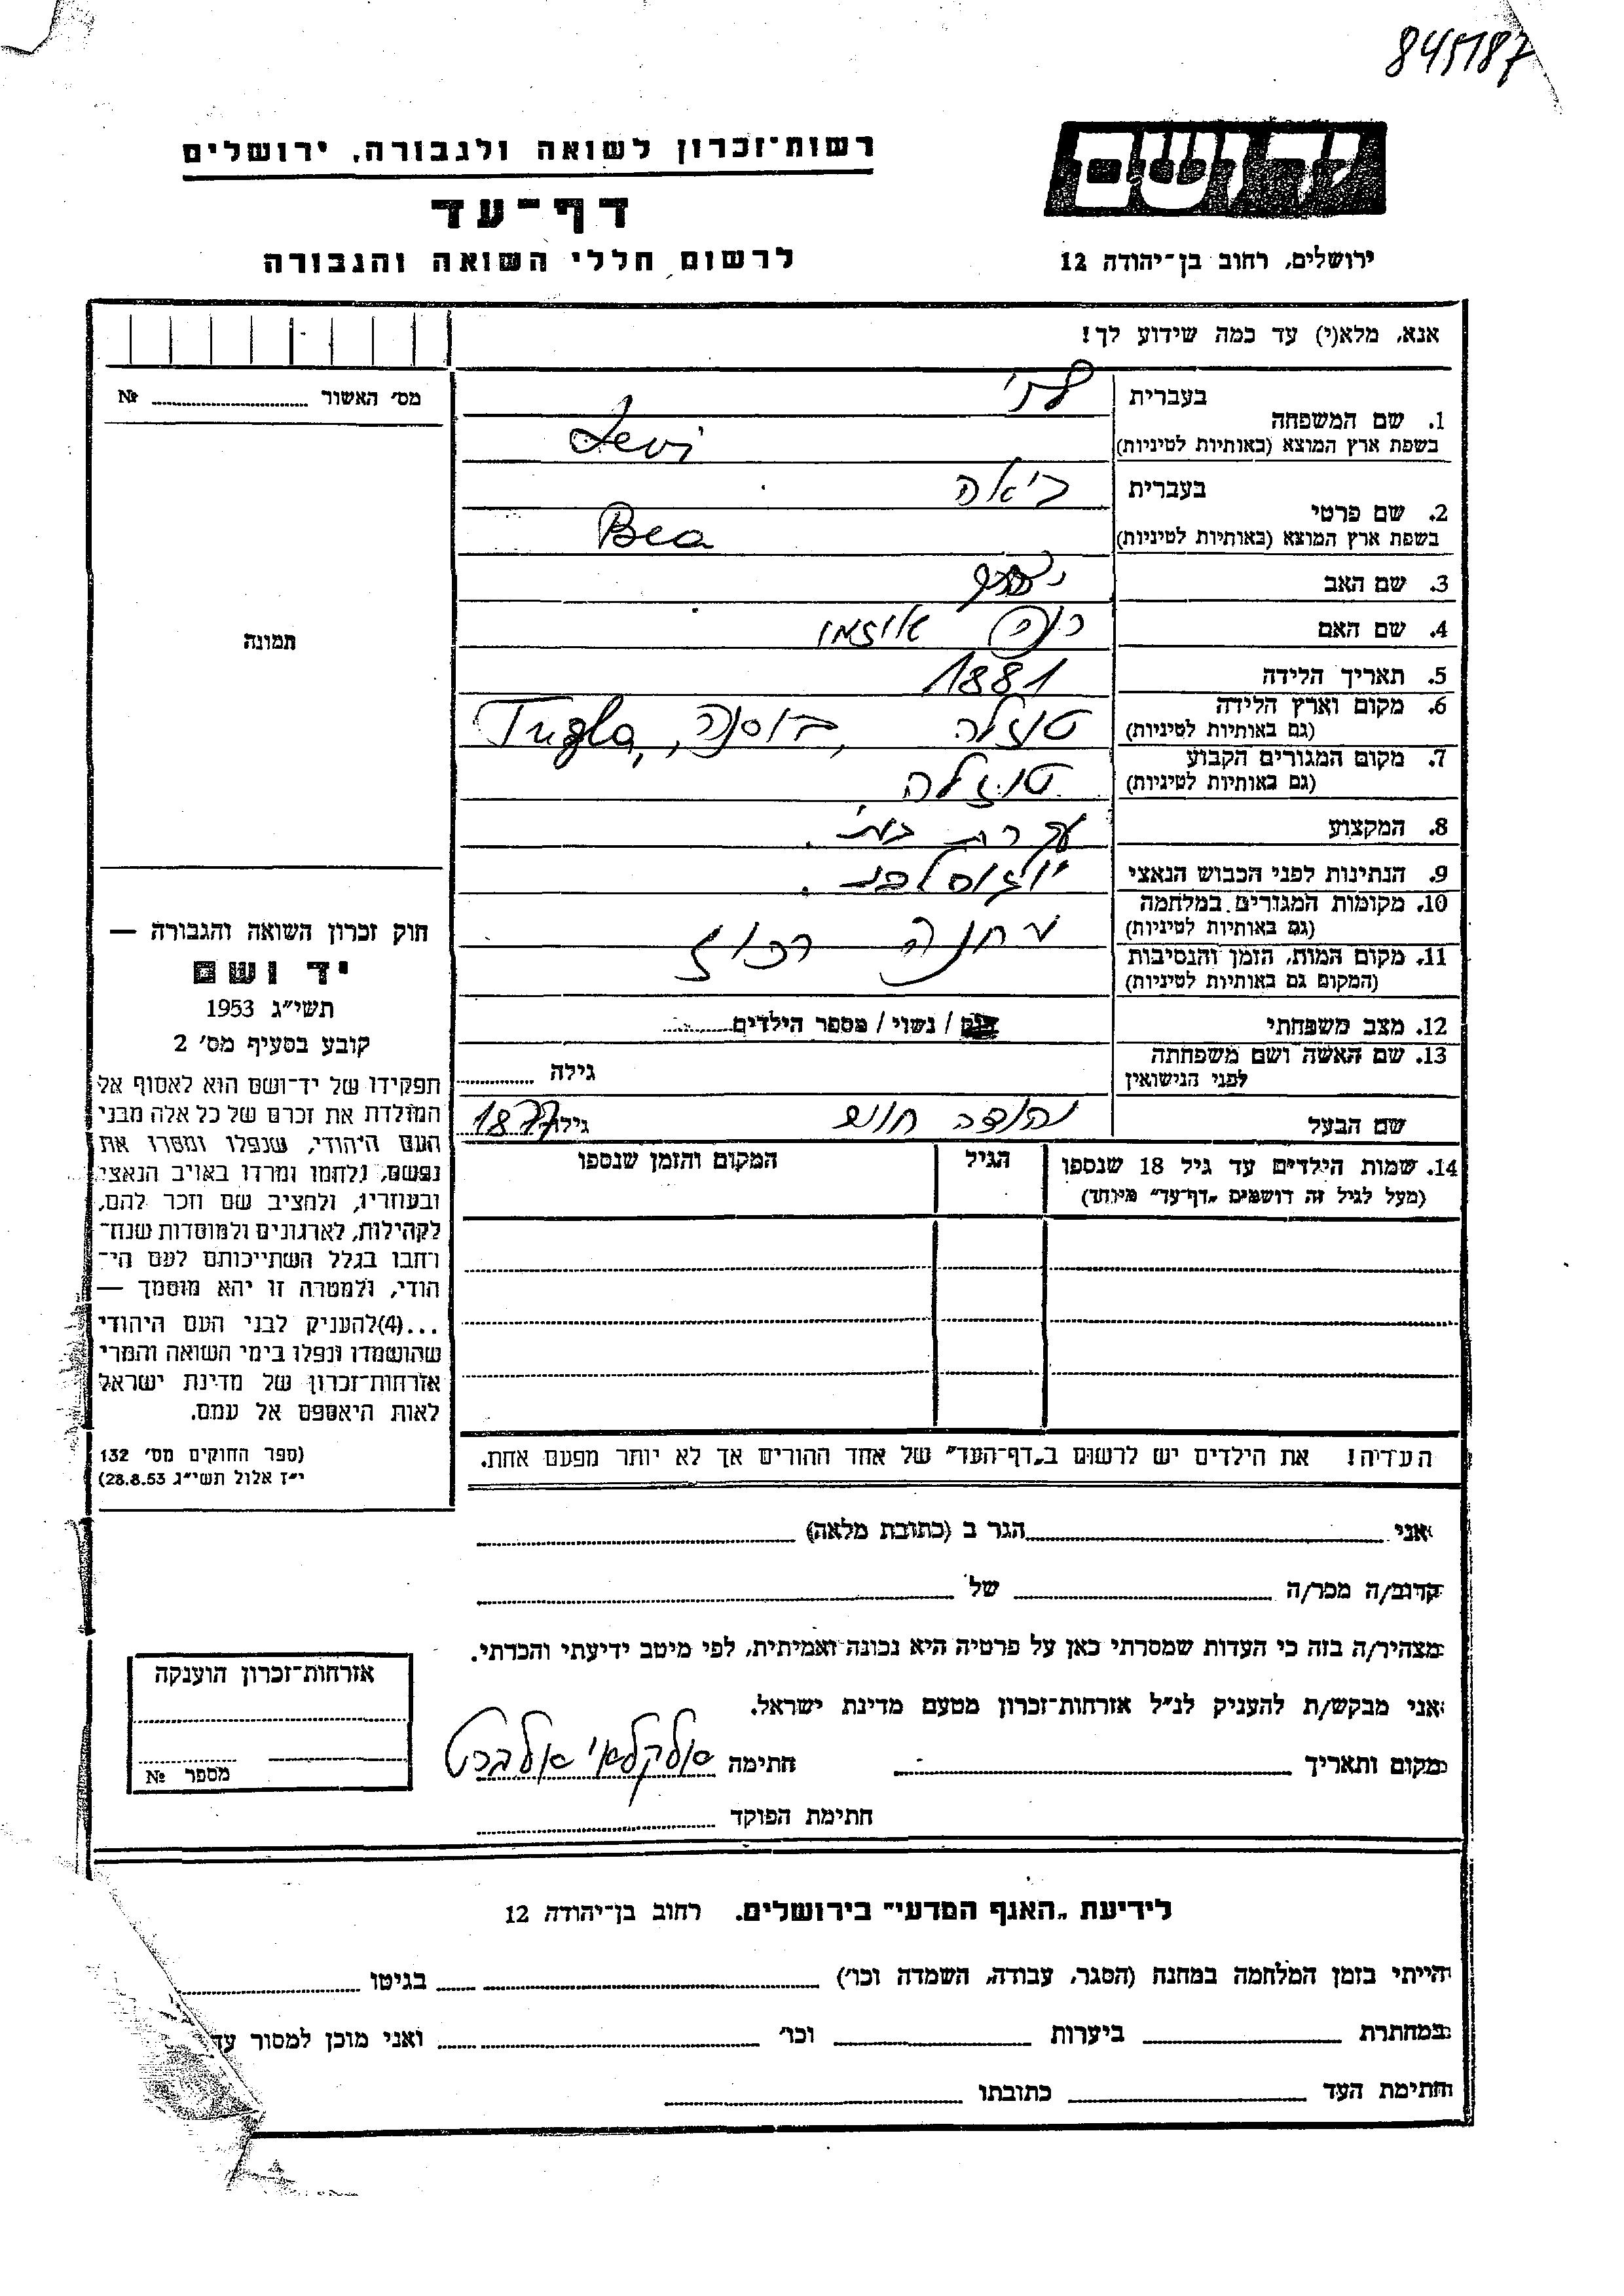 845187
יד ושם
רשות־זכרון לשואה ולגבורה, ירושלים
דף־עד
לרשום חללי השואה והגבורה
ירושלים, רחוב בן־יהודה 12
אנא, מלא(י) עד כמה שידוע לך!
מס׳ האשור № ........
1. שם המשפחה
בעברית לוי
בשפת ארץ המוצא (באותיות לטיניות) Levi
2. שם פרטי
בעברית ביאה
בשפת ארץ המוצא (באותיות לטיניות) Bea
3. שם האב יוסף
4. שם האם
5. תאריך הלידה 1881
6. מקום וארץ הלידה טוזלה, בוסנה,
(גם באותיות לטיניות)
7. מקום המגורים הקבוע טוזלה
(גם באותיות לטיניות)
8. המקצוע עקרת בית.
9. הנתינות לפני הכבוש הנאצי יוגוסלבית.
10. מקומות המגורים במלחמה
(גם באותיות לטיניות)
11. מקום המות, הזמן והנסיבות מחנה רכוז
(המקום גם באותיות לטיניות)
12. מצב משפחתי / נשוי / מספר הילדים........
13. שם האשה ושם משפחתה
לפני הנישואין גילה ........
שם הבעל יהודה גילו 1877
14. שמות הילדים עד גיל 18 שנספו הגיל המקום והזמן שנספו
(מעל לגיל זה רושמים „דף־עד״ מיוחד)
תמונה
חוק זכרון השואה והגבורה —
יד ושם
תשי״ג 1953
קובע בסעיף מס׳ 2
תפקידו של יד־ושם הוא לאסוף אל
המולדת את זכרם של כל אלה מבני
העם היהודי, שנפלו ומסרו את
נפשם, נלחמו ומרדו באויב הנאצי
ובעוזריו, ולהציב שם וזכר להם,
לקהילות, לארגונים ולמוסדות שנח־
רבו בגלל השתייכותם לעם הי־
הודי, ולמטרה זו יהא מוסמך —
...(4)להעניק לבני העם היהודי
שהושמדו ונפלו בימי השואה והמרי
אזרחות־זכרון של מדינת ישראל
לאות היאספם אל עמם.
(ספר החוקים מס׳ 132
י״ז אלול תשי״ג 28.8.53)
העריה! את הילדים יש לרשום ב„דף־העד״ של אחד ההורים אך לא יותר מפעם אחת.
אני ........ הגר ב (כתובת מלאה) ........
קרוב/ה מכר/ה ........ של ........
מצהיר/ה בזה כי העדות שמסרתי כאן על פרטיה היא נכונה ואמיתית, לפי מיטב ידיעתי והכרתי.
אני מבקש/ת להעניק לנ״ל אזרחות־זכרון מטעם מדינת ישראל.
מקום ותאריך ........ חתימה אלקלאי אלברט
חתימת הפוקד ........
אזרחות־זכרון הוענקה
מספר №
לידיעת „האגף המדעי״ בירושלים. רחוב בן־יהודה 12
הייתי בזמן המלחמה במחנה (הסגר, עבודה, השמדה וכו׳) ........ בגיטו ........
במחתרת ........ ביערות ........ וכו׳ ........ ואני מוכן למסור עד
חתימת העד ........ כתובתו ........